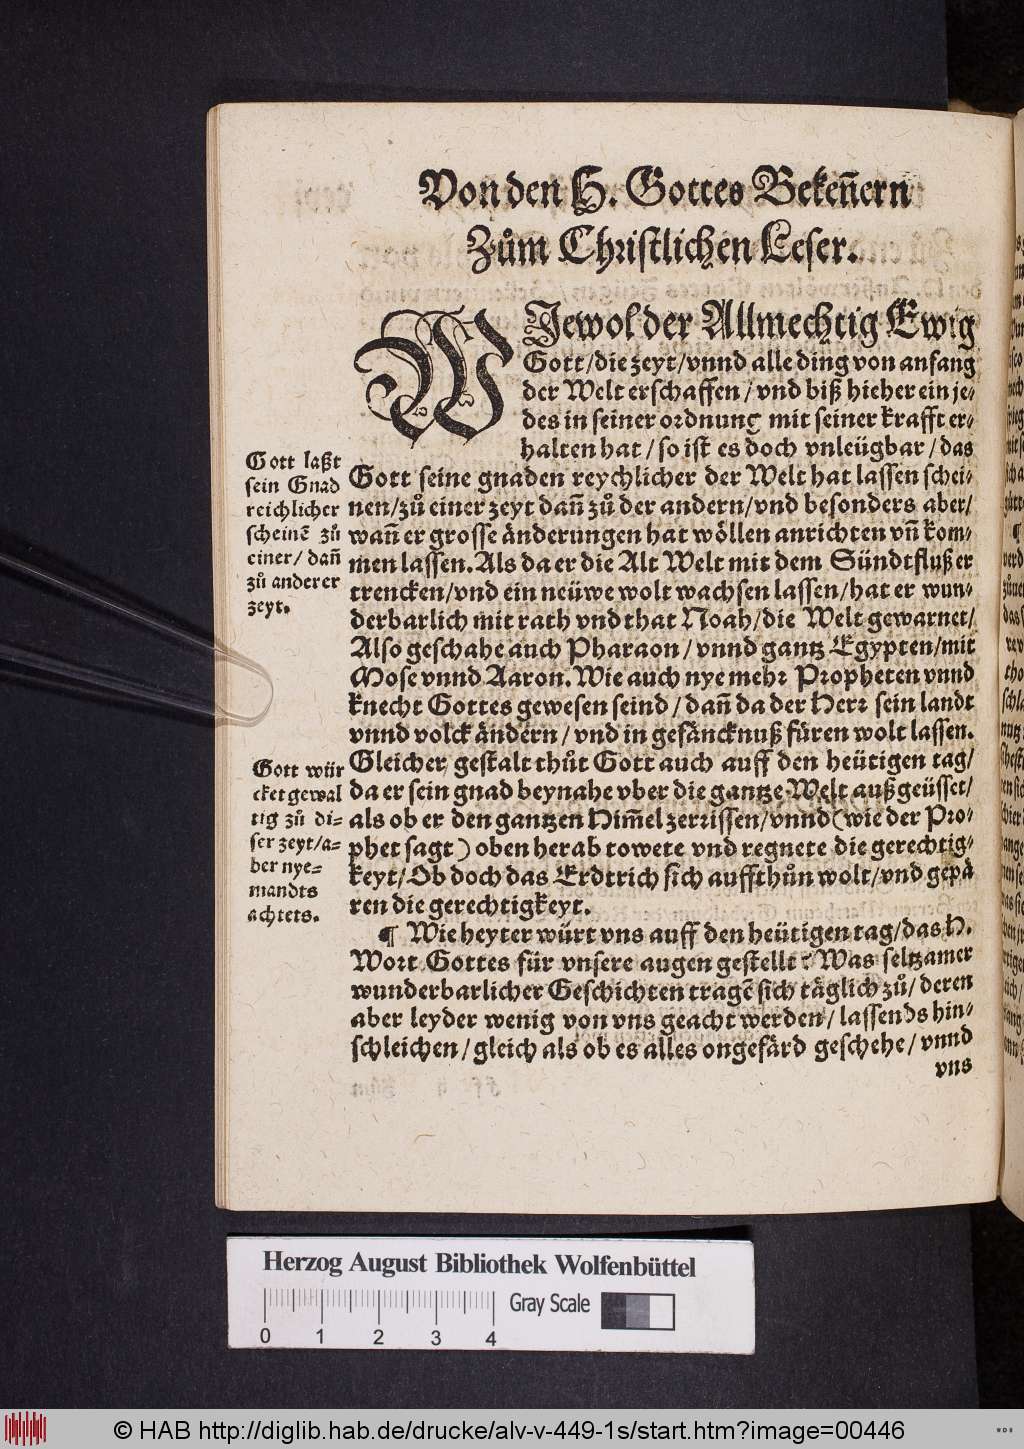 Von den H. Gottes Bekeñern
Zům Christlichen Leser.
WJewol der Allmechtig Ewig
Gott/die zeyt/vnnd alle ding von anfang
der Welt erschaffen/vnd biß hieher ein je-
des in seiner ordnung mit seiner krafft er-
halten hat/so ist es doch vnleügbar/das
Gott seine gnaden reychlicher der Welt hat lassen schei-
nen/zů einer zeyt dañ zů der andern/vnd besonders aber/
wañ er grosse änderungen hat wöllen anrichten vñ kom-
men lassen. Als da er die Alt Welt mit dem Sündtfluß er
trencken/vnd ein neüwe wolt wachsen lassen/hat er wun-
derbarlich mit rath vnd that Noah/die Welt gewarnet/
Also geschahe auch Pharaon/vnnd gantz Egypten/mit
Mose vnnd Aaron. Wie auch nye mehr Propheten vnnd
knecht Gottes gewesen seind/dañ da der Herr sein landt
vnnd volck ändern/vnd in gefäncknuß füren wolt lassen.
Gleicher gestalt thůt Gott auch auff den heütigen tag/
da er sein gnad beynahe vber die gantze Welt außgeüsset/
als ob er den gantzen Him̃el zerrissen/vnnd (wie der Pro-
phet sagt) oben herab towete vnd regnete die gerechtig-
keyt/Ob doch das Erdtrich sich auffthůn wolt/vnd gepä
ren die gerechtigkeyt.
¶ Wie heyter würt vns auff den heütigen tag/das H.
Wort Gottes für vnsere augen gestellt? Was seltzamer
wunderbarlicher Geschichten tragẽ sich täglich zů/deren
aber leyder wenig von vns geacht werden/lassends hin-
schleichen/gleich als ob es alles ongefärd geschehe/vnnd
vns
Gott laßt
sein Gnad
reichlicher
scheinẽ zů
einer/dañ
zů anderer
zeyt.
Gott wür
cket gewal
tig zů di-
ser zeyt/a-
ber nye-
mandts
achtets.
Herzog August Bibliothek Wolfenbüttel
Gray Scale
0 1 2 3 4
© HAB http://diglib.hab.de/drucke/alv-v-449-1s/start.htm?image=00446